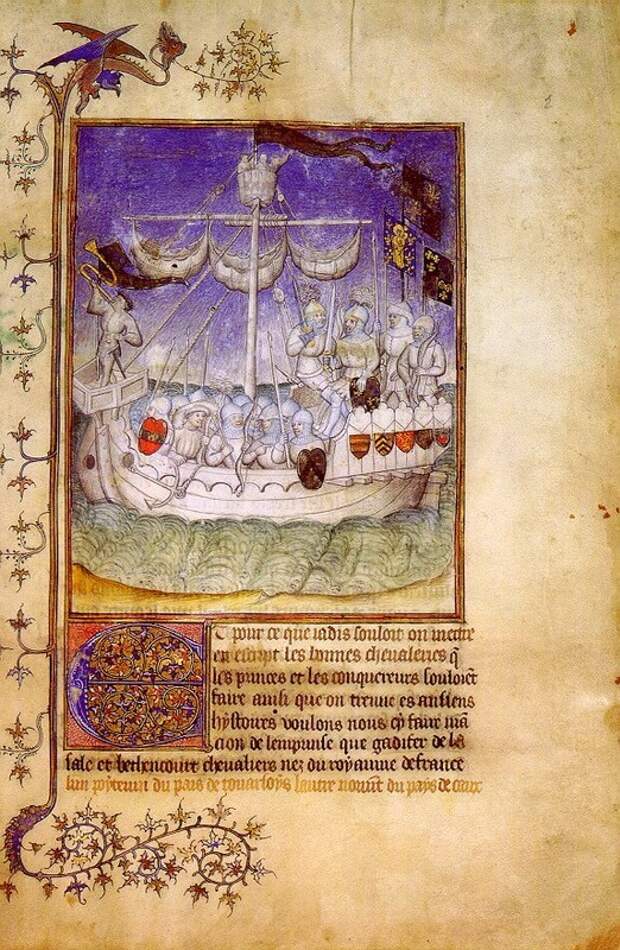 Et pour ce que iadis souloit on mectre
en escript les bonnes cheualeries q̄
les princes et les conquereurs souloiēt
faire ainsi que on treuue es ansiens
hystoires voulons nous cy faire mā
cion de lemprinse que gadifer de la
sale et bethencourt cheualiers nez du royaume de france
lun poyteuin du pais de touarloys lautre normāt du pays de caux